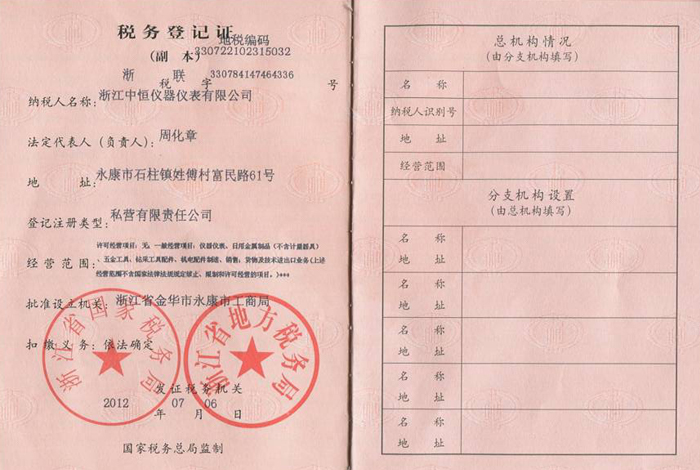 税务登记证
地税编码
(副 本)
330722102315032
浙 联
330784147464336
税 字 号
纳税人名称:浙江中恒仪器仪表有限公司
法定代表人(负责人):周化章
地 址:永康市石柱镇姓傅村富民路61号
登记注册类型:私营有限责任公司
许可经营项目:无。一般经营项目:仪器仪表,日用金属制品(不含计量器具)
经营范围:、五金工具、钻采工具配件、机电配件制造、销售;货物及技术进出口业务(上述
经营范围不含国家法律法规规定禁止、限制和许可经营的项目。)***
批准设立机关:浙江省金华市永康市工商局
扣缴义务:依法确定
浙江省国家税务局
浙江省地方税务局
发证税务机关
2012 年 07 月 06 日
国家税务总局监制
总机构情况
(由分支机构填写)
名 称
纳税人识别号
地 址
经营范围
分支机构设置
(由总机构填写)
名 称
地 址
名 称
地 址
名 称
地 址
名 称
地 址
名 称
地 址